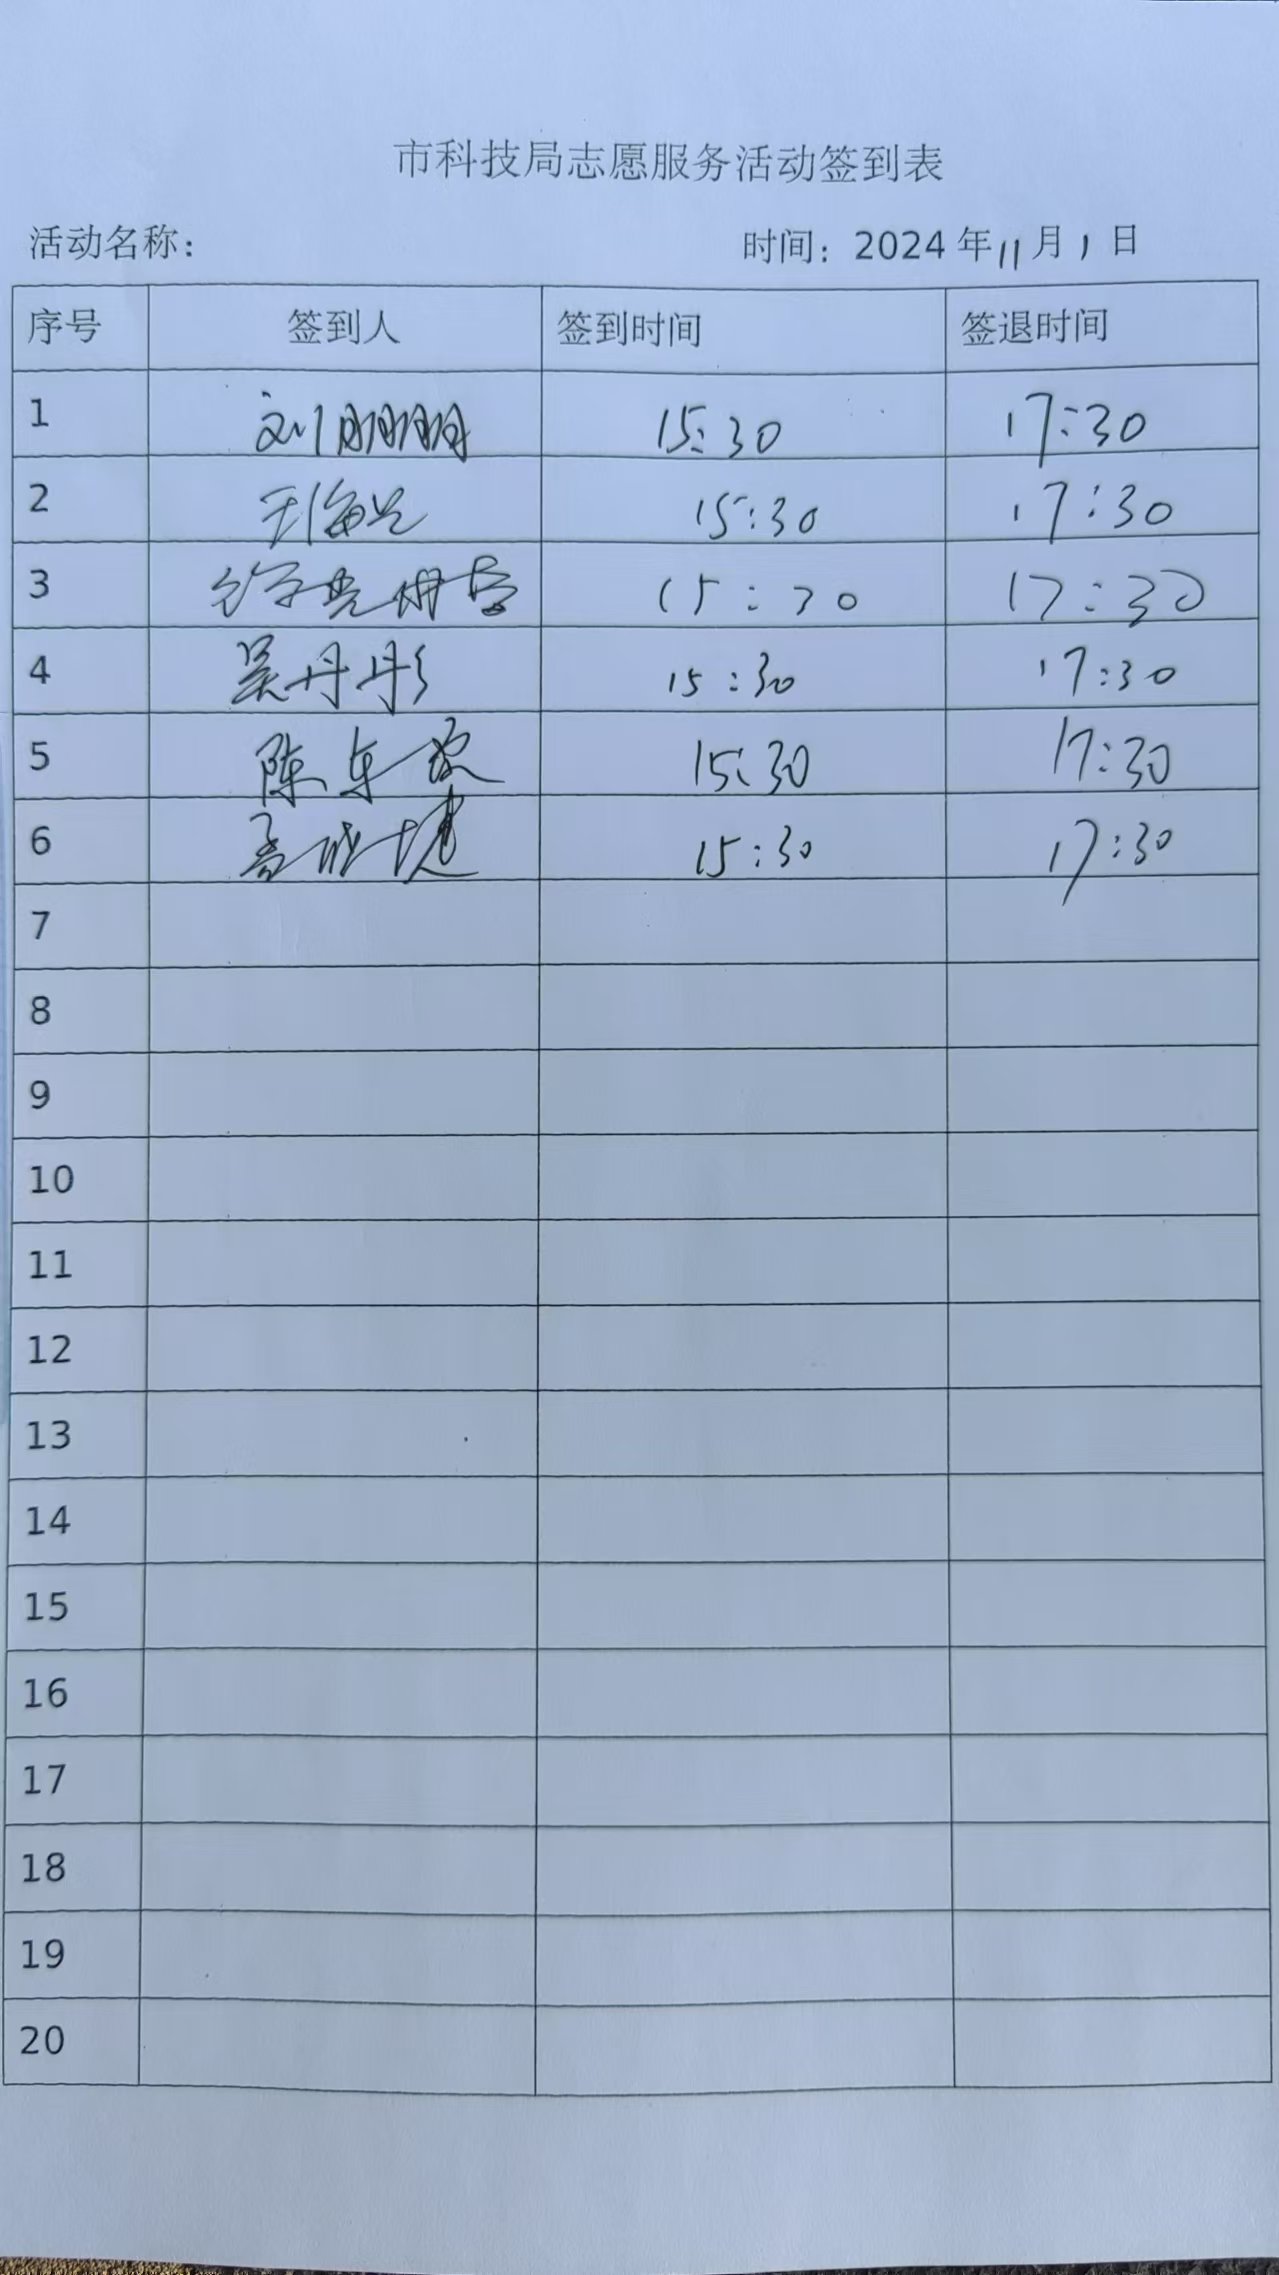 市科技局志愿服务活动签到表
活动名称： 时间：2024 年 11 月 1 日
序号 签到人 签到时间 签退时间
1 刘朋朋 15:30 17:30
2 15:30 17:30
3 15:30 17:30
4 吴丹彤 15:30 17:30
5 陈 15:30 17:30
6 15:30 17:30
7
8
9
10
11
12
13
14
15
16
17
18
19
20